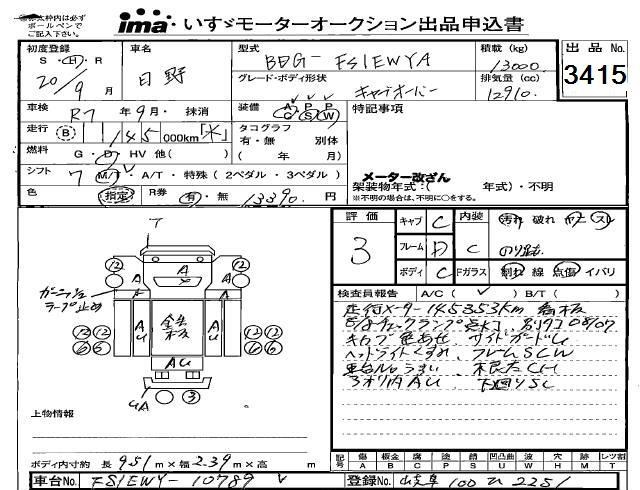 ※太枠内は必ず
ボールペンで
ご記入下さい。
ima いすゞモーターオークション出品申込書
初度登録 車名 型式 積載(kg)
S・H・R 日野 BDG- FS1EWYA 13000
20/9月
グレード・ボディ形状 排気量(cc)
キャブオーバー 12910.
出品No.
3415
車検 R7年9月・抹消 装備 A/C P/S P/W
特記事項
走行 B 145 000km「米」 タコグラフ
有・無 別体
燃料 G・D・HV 他( ) ( 年 月)
シフト 7 M/T・A/T・特殊(2ペダル・3ペダル)
メーター改ざん
架装物年式:( 年式)・不明
※不明の場合は、不明に○をする。
色 指定 R券 有・無 13390.円
評価 3
キャブ C 内装 汚れ 破れ ヤニ スレ
フレーム D C
ボディ C Fガラス 割れ 線 点傷 イバリ
検査員報告 A/C( ) B/T( )
走行メーター145353km 看板
キャブ色あせ、サイドガードU
ヘッドライトくすみ、フレームSCW
3オリ内AU、下回りSC
T
⑫ ⑫
A
A A
ガーニッシュ
テープ止め
AU AU
⑫⑫ ⑫⑫
⑥⑥ ⑥⑥
AU
UA ③
上物情報
記号 傷 A 板金 B 腐 C 塗 P 錆 S 凹凸曲 U 波 W 穴 H 跡 M レツ割 T
ボディ内寸約 長 951 m×幅 2.39 m×高 m
車台No. FS1EWY-10789
登録No. 岐阜 100 ひ 2251